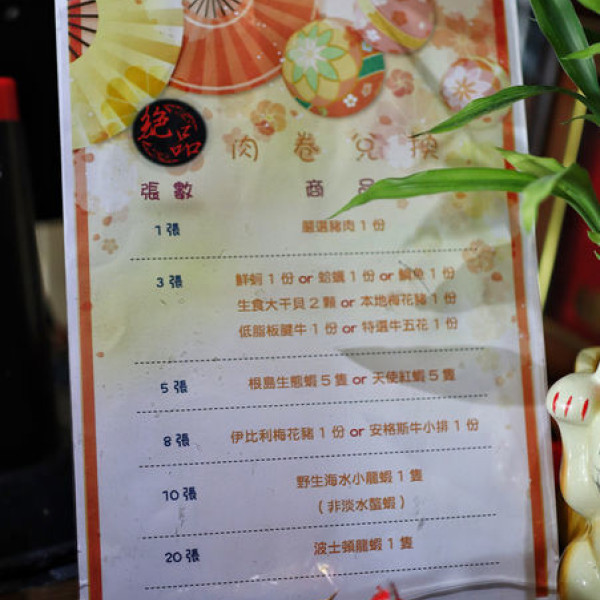 絶品 肉卷兌換
張數 商品
1張 嚴選豬肉1份
3張 鮮蚵1份or蛤蠣1份or鯛魚1份
生食大干貝2顆or本地梅花豬1份
低脂板腱牛1份or特選牛五花1份
5張 根島生態蝦5隻or天使紅蝦5隻
8張 伊比利梅花豬1份or安格斯牛小排1份
10張 野生海水小龍蝦1隻
（非淡水螯蝦）
20張 波士頓龍蝦1隻